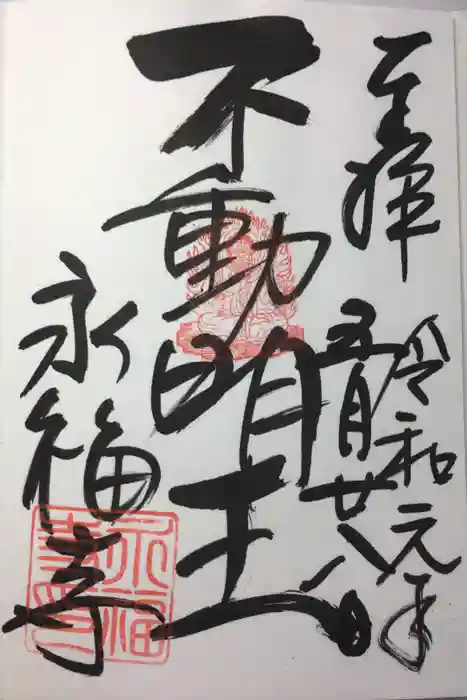 奉拝
令和元年
五月廿八日
不動明王
永福寺
永福
寺印